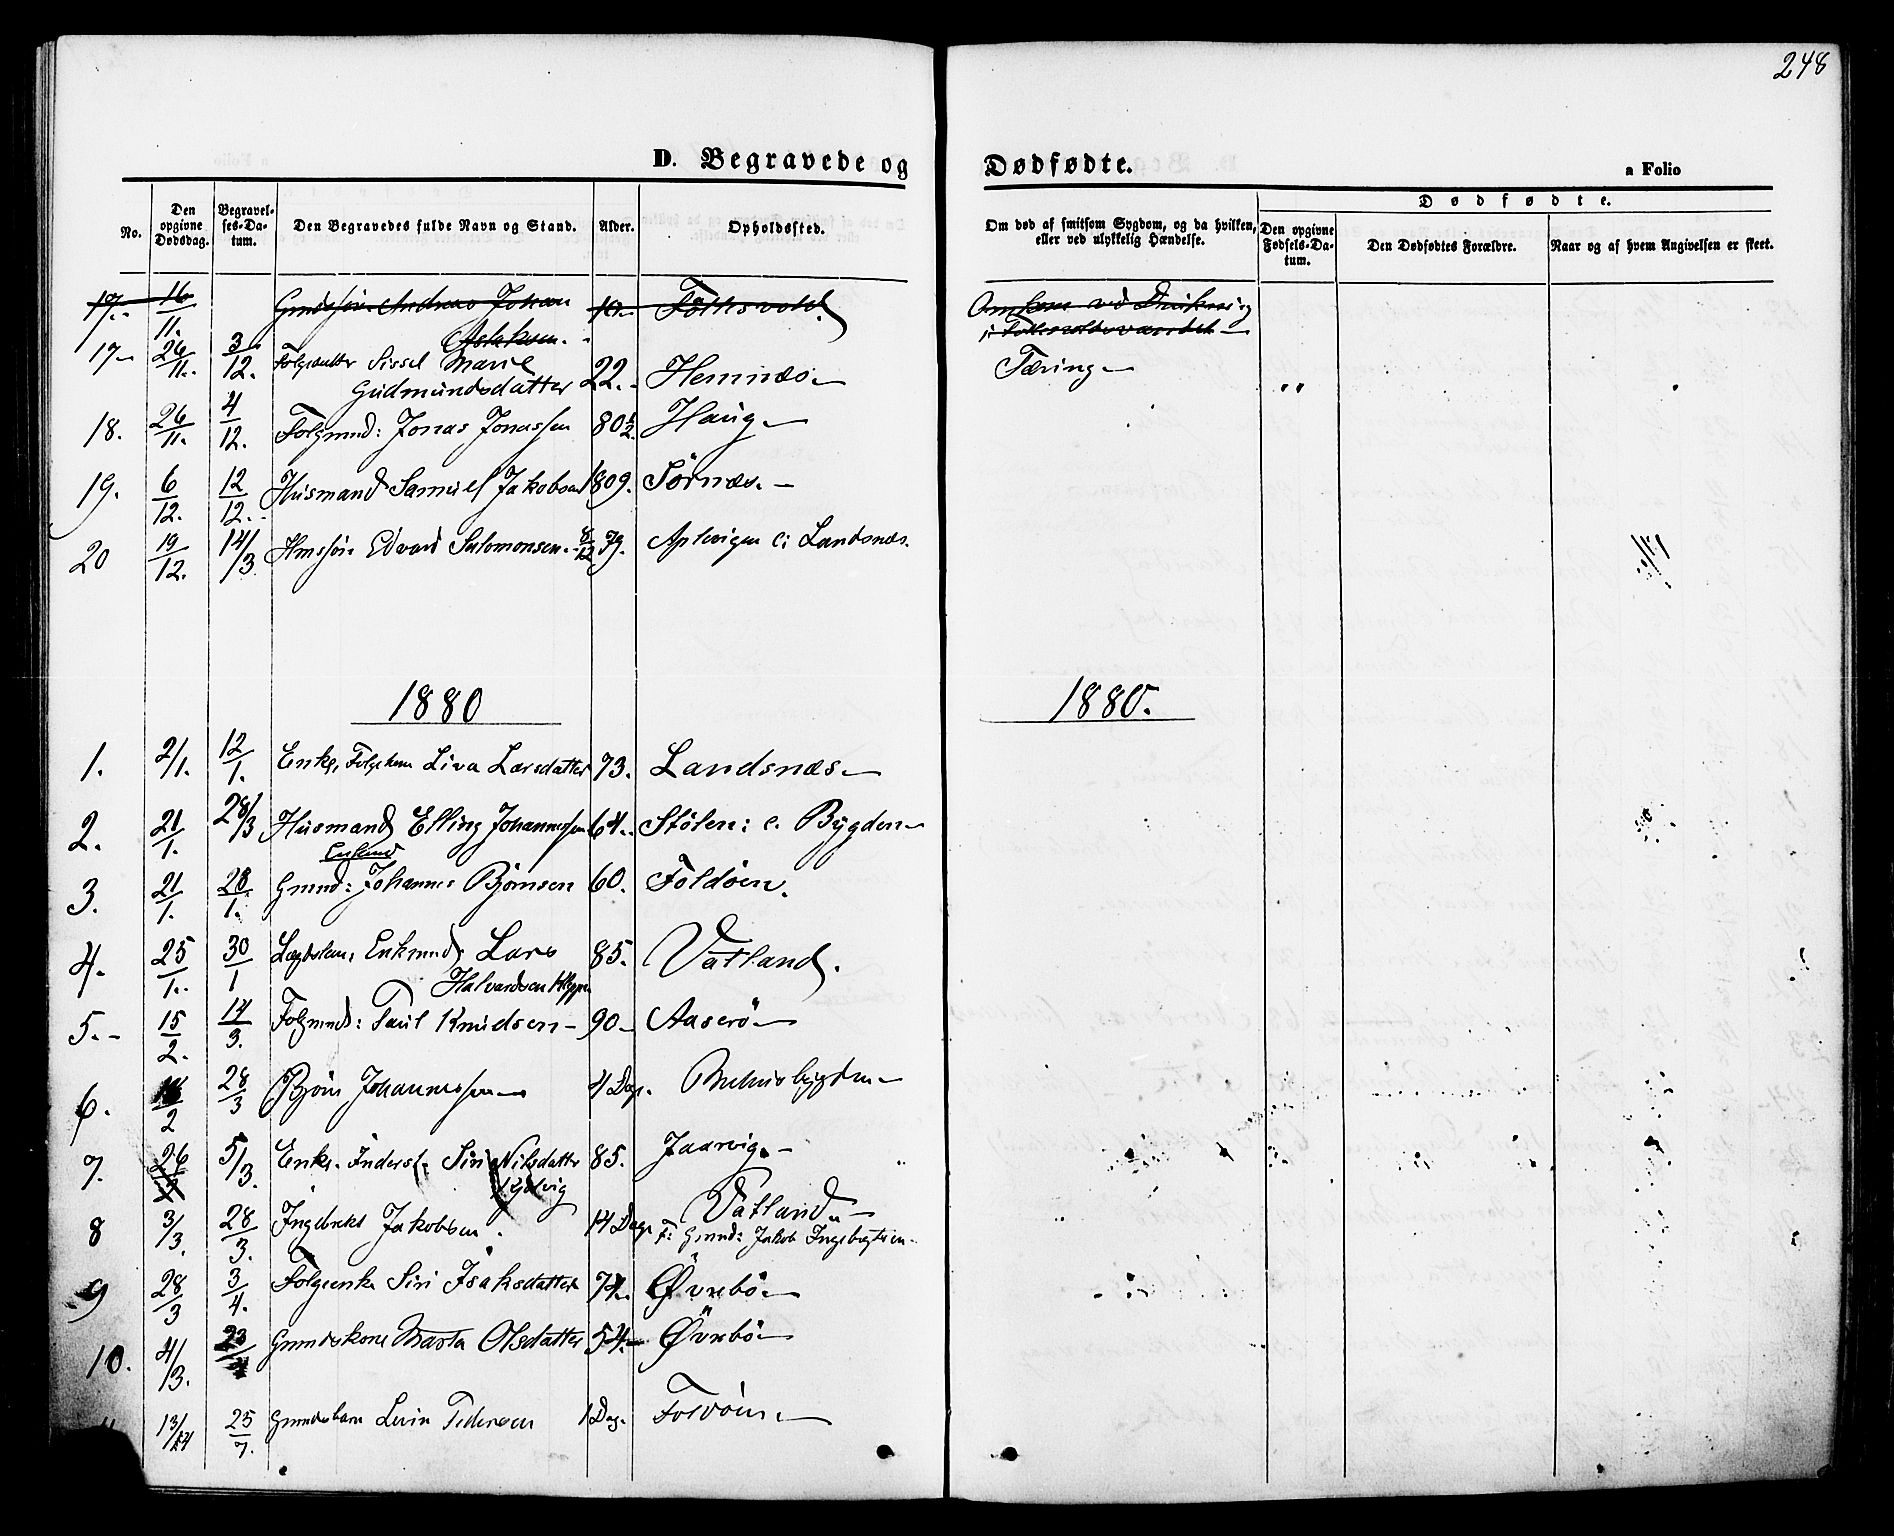 248
D. Begravede og Dødfødte.
a Folio
No.
Den opgivne Dødsdag.
Begravel-ses-Da-tum.
Den Begravedes fulde Navn og Stand.
Alder.
Opholdssted.
Om død af smitsom Sygdom, og da hvilken, eller ved ulykkelig Hændelse.
Dødfødte.
Den opgivne Fødsels-Da-tum.
Den Dødfødtes Forældre.
Naar og af hvem Angivelsen er skeet.
17. 16/11. Gmdssøn Andreas Johan 10 Folksvold. Omkom ved Drukning
Askksen. i
17 26/11. 3/12. Folgedatter Sissel Marie
Gudmundsdatter 22. Hemnæs Tæring
18. 26/11. 4/12. Folgmnd: Jonas Jonassen 80 1/2 Haug
19. 6/12. 12/12. Husmand Samuel Jakobsen 1809. Sørnæs.
20 19/12. 14/3. Hmssøn Edvard Salomonsen 8/12 79. Aplevigen e: Landsnæs.
1880 1880.
1. 2/1. 12/1. Enke, Folgekone Liva Larsdatter 73. Landsnæs
2. 21/1. 28/3 Husmand Elling Johannessen 64. Stölen: e. Bygden
Enkmd
3. 21/1. 28/1. Gmnd: Johannes Bjørnsen 60. Foldöen.
4. 25/1. 30/1 Lægdslem, Enkmnd Lars 85. Vatland.
Halvardsen
5. 15/2. 14/3. Folgmnd: Paul Knudsen 90 Aaserö
6. 2 28/3 Bjørn Johannessen 4 Dage.
7. 26 5/3. Enke. Inderst: Siri Nilsdatter 85. Jaarvig.
8 3/3. 28/3. Ingebrekt Jakobsen. 14 Dage Vatland
F: Gmnd: Jakob Ingebregtsen
9 28/3 3/4. Folgeenke Siri Isaksdatter 74. Øvrebö
10. 4/3. 23/4 Gmndskone Marta Olsdatter 54. Øvrebö
13/24 25/7. Gmndsbarn Levin Pedersen 1 Dag. Foldöen